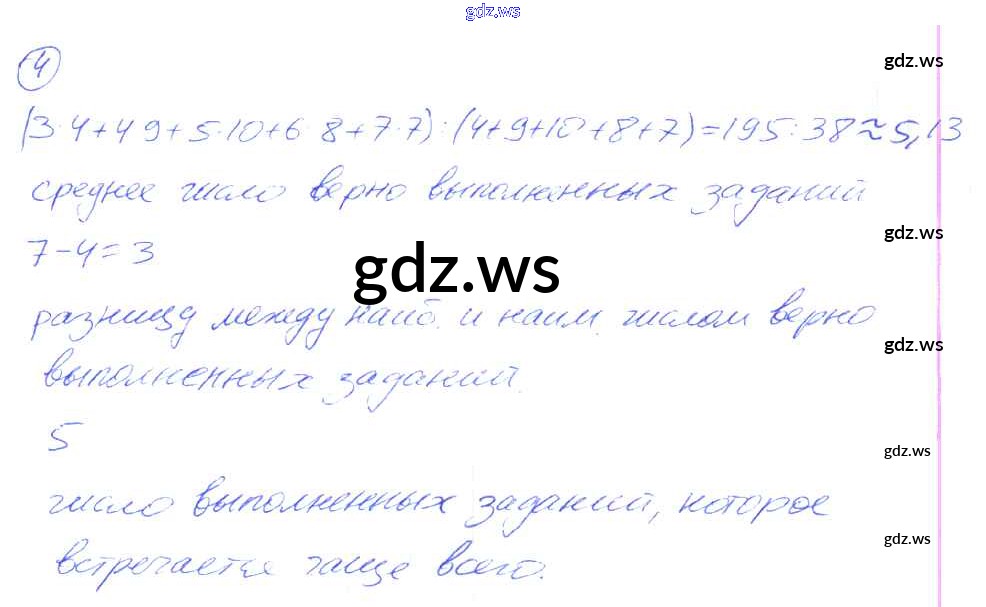 gdz.ws
4
gdz.ws
(3·4+4·9+5·10+6·8+7·7):(4+9+10+8+7)=195:38≈5,13
среднее число верно выполненных заданий
gdz.ws
7-4=3
gdz.ws
разницу между наиб. и наим. числом верно
gdz.ws
выполненных заданий.
5
gdz.ws
число выполненных заданий, которое
gdz.ws
встречается чаще всего.